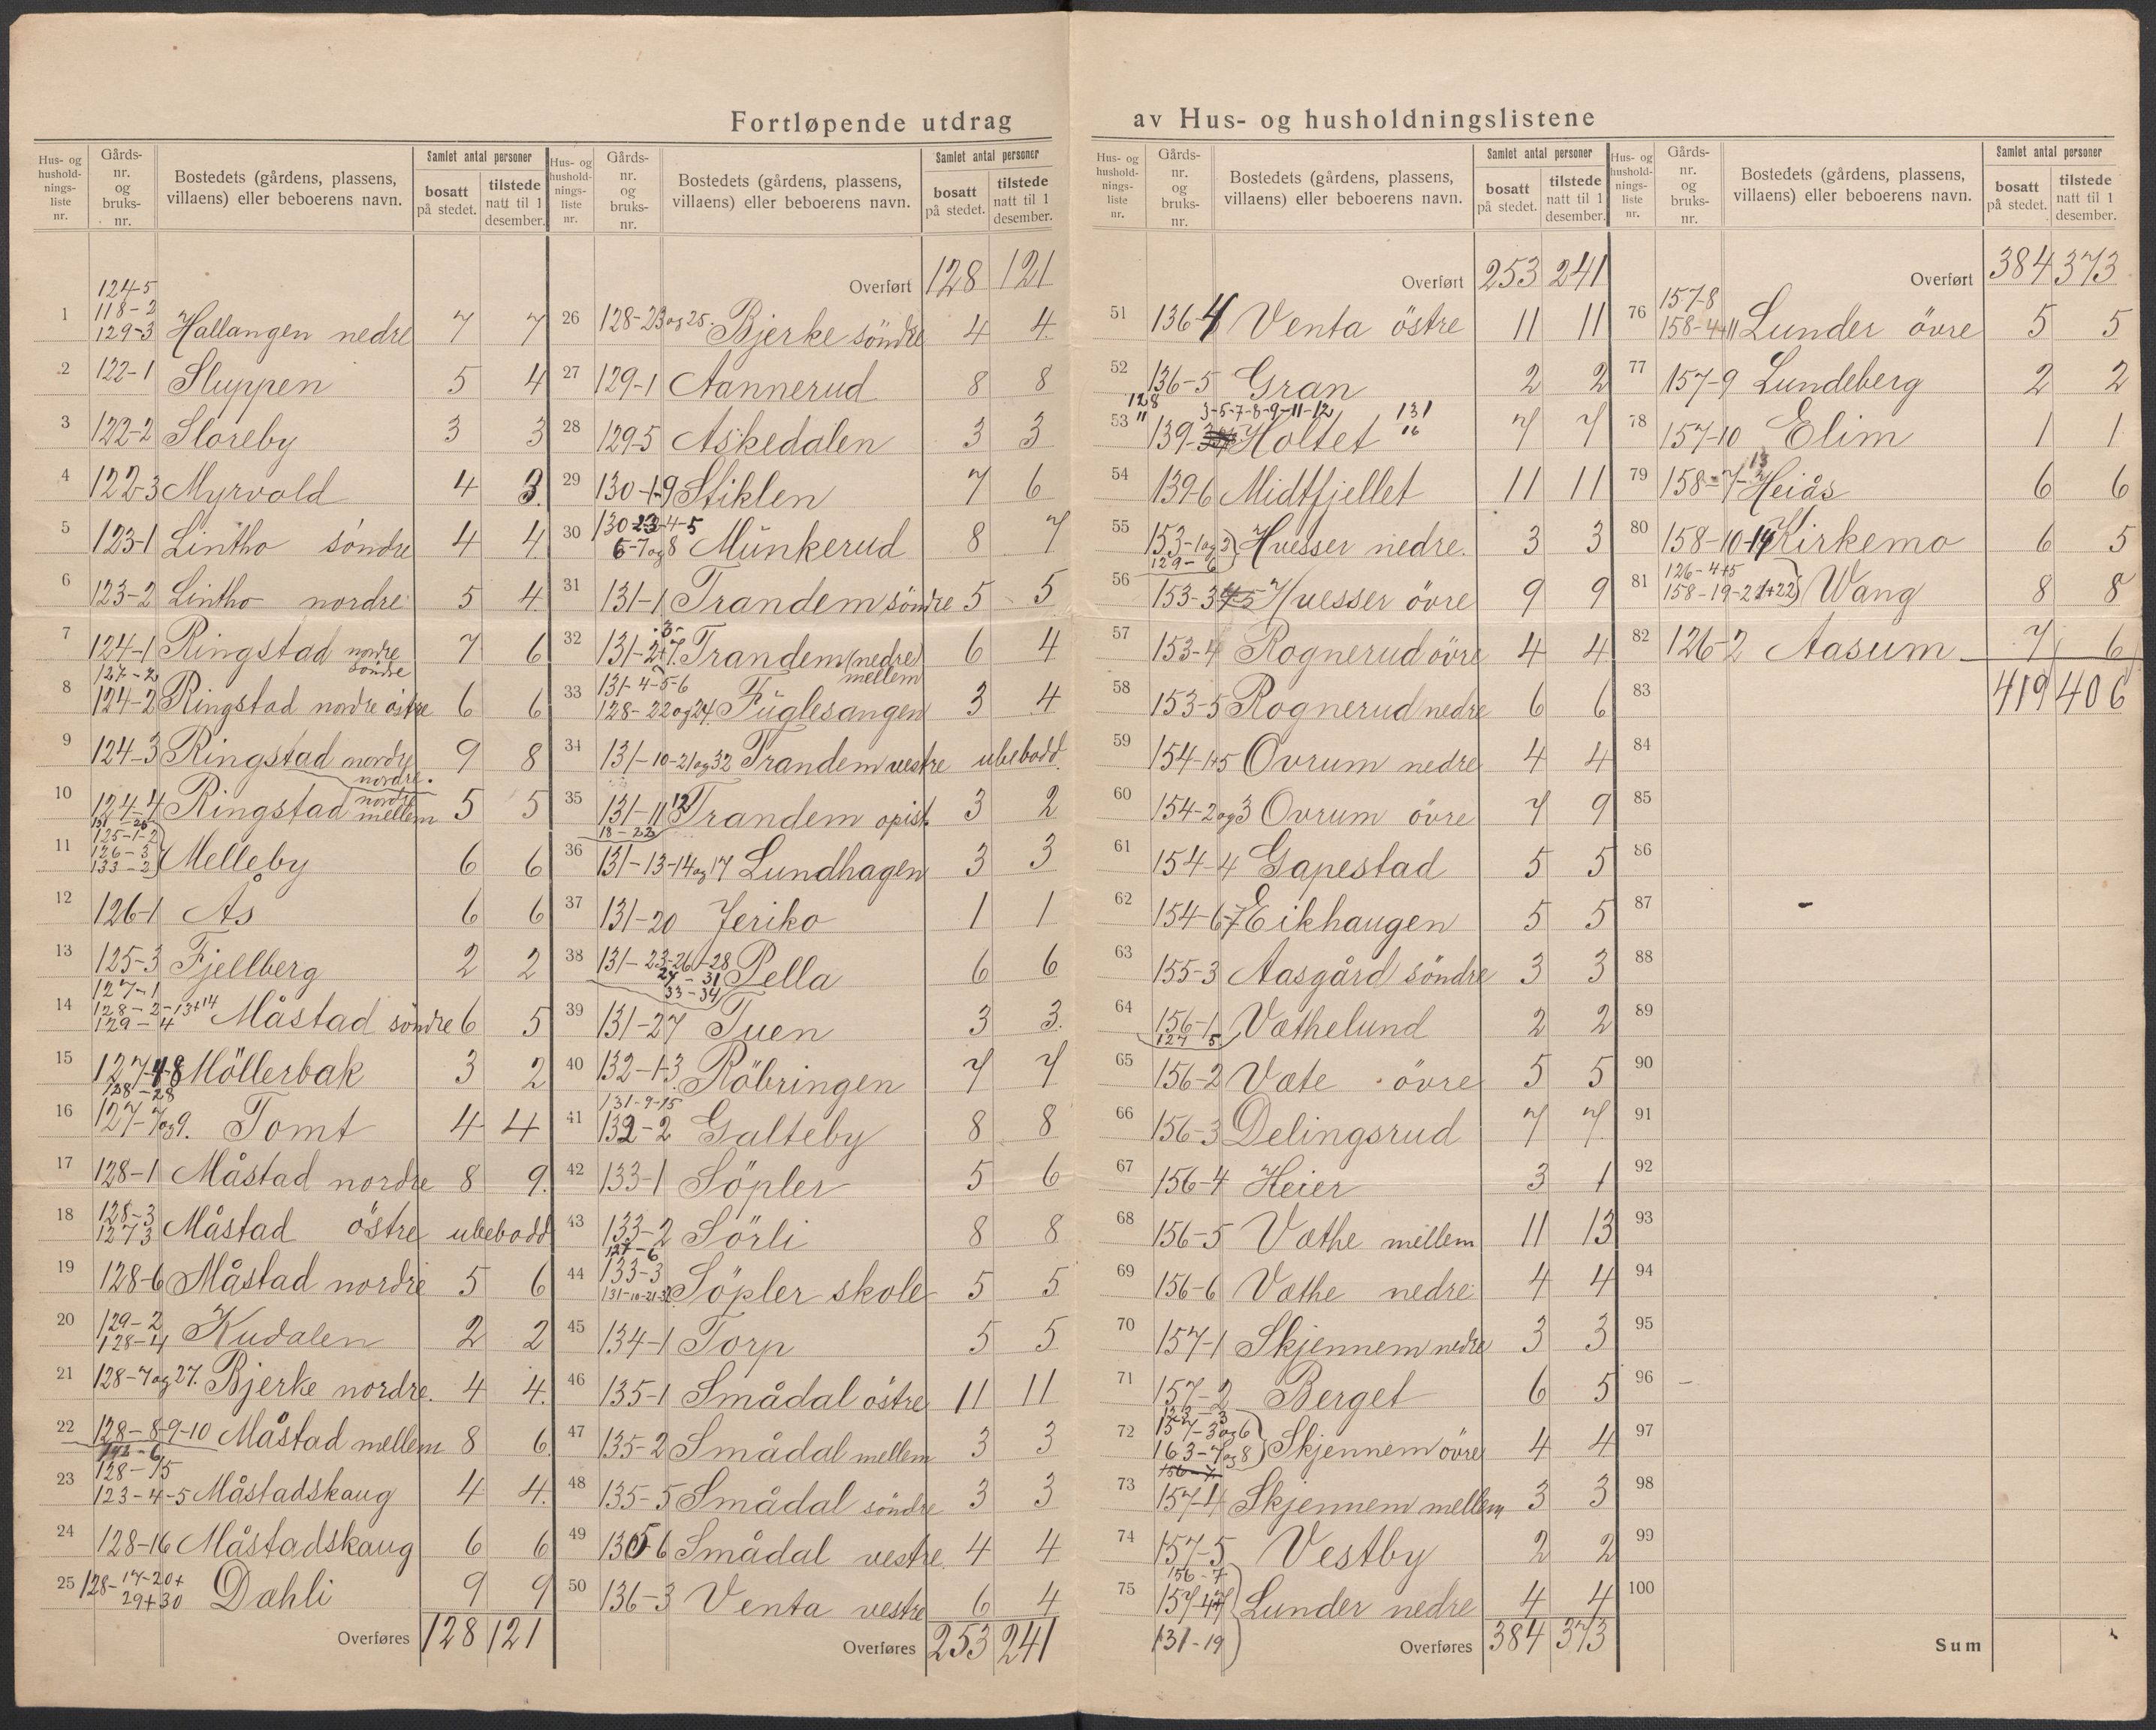 Fortløpende utdrag av Hus- og husholdningslistene
Hus- og hushold- nings- liste nr. | Gårds- nr. og bruks- nr. | Bostedets (gårdens, plassens, villaens) eller beboerens navn. | Samlet antal personer | bosatt på stedet. | tilstede natt til 1 desember.
1 124-5 118-2 129-3 Hallangen nedre 7 7
2 122-1 Sluppen 5 4
3 122-2 Sloreby 3 3
4 122-3 Myrvold 4 3.
5 123-1 Lintho søndre 4 4
6 123-2 Lintho nordre 5 4.
7 124-1 Ringstad nordre søndre 7 6
8 127-2 124-2 Ringstad nordre østre 6 6
9 124-3 Ringstad nordre nordre. 9 8
10 124-4 Ringstad nordre mellem 5 5
11 125-1-2 126-3 133-2 Melleby 6 6
12 126-1 Ås 6 6
13 125-3 Fjellberg 2 2
14 127-1 128-2-13+14 129-4 Måstad söndre 6 5
15 127-4-8 Möllerbak 3 2
16 128-28 127-7og9. Tomt 4 4
17 128-1 Måstad nordre 8 9.
18 128-3 127 3 Måstad östre ubebodd
19 128-6 Måstad nordre 5 6
20 129-2 128-4 Kudalen 2 2
21 128-7og27. Bjerke nordre. 4 4.
22 128-8-9-10 Måstad mellem 8 6.
23 128-15 123-4-5 Måstadskaug 4 4.
24 128-16 Måstadskaug 6 6
25 128-17-20+ 29+30 Dæhli 9 9
Overføres 128 121
Hus- og hushold- nings- liste nr. | Gårds- nr. og bruks- nr. | Bostedets (gårdens, plassens, villaens) eller beboerens navn. | Samlet antal personer | bosatt på stedet. | tilstede natt til 1 desember.
Overført 128 121
26 128-23og25. Bjerke söndre 4 4.
27 129-1 Aannerud 8 8
28 129-5 Askedalen 3 3
29 130-1-9 Stiklen 7 6
30 130-23-4-5 6-7og8 Munkerud 8 7
31 131-1 Trandem söndre 5 5
32 131-2+7. 3- Trandem (nedre) mellem 6 4
33 131-4-5-6 128-22og24. Fuglesangen 3 4
34 131-10-21og32 Trandem vestre ubebodd.
35 131-11 12 Trandem opist. 3 2
18-22
36 131-13-14og17 Lundhagen 3 3
37 131-20 Jeriko 1 1
38 131-23-26-28 24-31 33-34 Pella 6 6
39 131-27 Tuen 3 3.
40 132-1-3. Röbringen 7 7
41 131-9-15 132-2 Galteby 8 8
42 133-1 Söpler 5 6
43 133-2 Sörli 8 8
44 127-6 133-3 131-10-21-32 Söpler skole 5 5
45 134-1 Torp 5 5
46 135-1 Smådal östre 11 11
47 135-2 Smådal mellem 3 3
48 135-5 Smådal söndre 3 3
49 135 6 Smådal vestre. 4 4
50 136-3 Venta vestre 6 4
Overføres 253 241
Hus- og hushold- nings- liste nr. | Gårds- nr. og bruks- nr. | Bostedets (gårdens, plassens, villaens) eller beboerens navn. | Samlet antal personer | bosatt på stedet. | tilstede natt til 1 desember.
Overført 253 241
51 136-4 Venta östre 11 11
52 136-5 Gran 2 2
53 128 11 139-3-5-7-8-9-11-12 Holtet 131 16 7 7
54 139-6 Midtfjellet 11 11
55 153-1og2 129-6 Huesser nedre. 3 3
56 153-3 Huesser övre 9 9
57 153-4 Rognerud övre 4 4
58 153-5 Rognerud nedre 6 6
59 154-1+5 Ovrum nedre 4 4
60 154-2og3 Ovrum övre 7 9
61 154-4 Gapestad 5 5
62 154-6-7 Eikhaugen 5 5
63 155-3 Aasgård söndre 3 3
64 156-1 127 5. Væthelund 2 2
65 156-2 Væte övre 5 5
66 156-3 Delingsrud 7 7
67 156-4 Heier 3 1
68 156-5 Væthe mellem 11 13
69 156-6 Væthe nedre 4 4
70 157-1 Skjennem nedre 3 3
71 157-2 Berget 6 5
72 157-3og6 163-7og8 Skjennem övre 4 4
73 157-4 Skjennem mellem 3 3
74 157-5 Vestby 2 2
75 156-7 157-4+7 131-19 Lunder nedre 4 4
Overføres 384 373
Hus- og hushold- nings- liste nr. | Gårds- nr. og bruks- nr. | Bostedets (gårdens, plassens, villaens) eller beboerens navn. | Samlet antal personer | bosatt på stedet. | tilstede natt til 1 desember.
Overført 384 373
76 157-8 158-4+11 Lunder övre 5 5
77 157-9 Lundeberg 2 2
78 157-10 Elim 1 1
79 158-7-13 Heiås 6 6
80 158-10-14 Kirkemo 6 5
81 126-4+5 158-19-21+22 Wang 8 8
82 126-2 Aasum 7 6
83 419 406
84
85
86
87
88
89
90
91
92
93
94
95
96
97
98
99
100
Sum